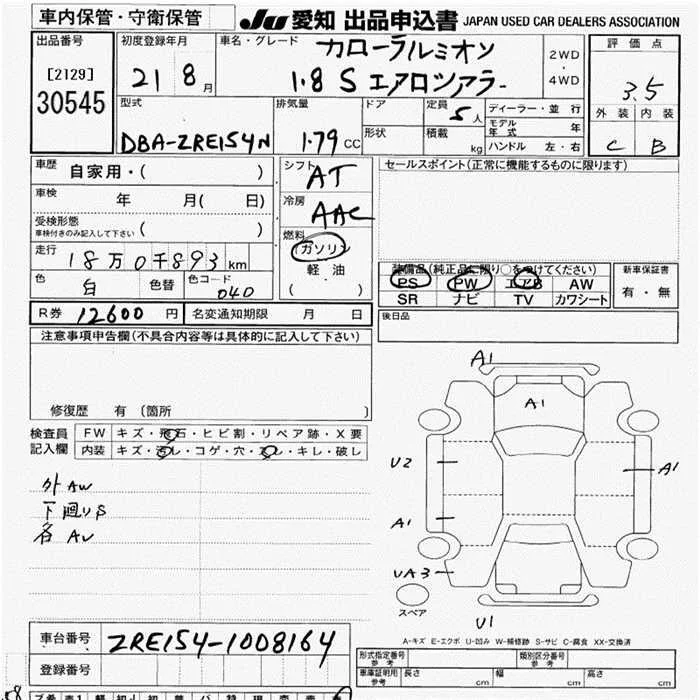 車内保管・守衛保管
JU 愛知 出品申込書 JAPAN USED CAR DEALERS ASSOCIATION
出品番号
[2129]
30545
初度登録年月
21 8 月
車名・グレード
カローラルミオン
1.8 S エアロツアラー
2WD
・
4WD
評価点
3.5
外装 内装
C B
型式
DBA-ZRE154N
排気量
1.79 CC
ドア
形状
定員
5 人
積載
kg
ディーラー・並行
モデル年式 年
ハンドル 左・右
車歴 自家用・( )
車検 年 月( 日)
受検形態
車検付きのみ記入して下さい ( )
走行
18万0千893 km
色
白
色替
色コード
040
シフト
AT
冷房
AAC
燃料
ガソリン
軽油
( )
セールスポイント(正常に機能するものに限ります)
装備品(純正品に限り○をつけてください)
PS PW エアB AW
SR ナビ TV カワシート
新車保証書
有・無
R券 12600 円 名変通知期限 月 日
後日品
注意事項申告欄(不具合内容等は具体的に記入して下さい)
修復歴 有(箇所 )
検査員
記入欄
FW キズ・飛石・ヒビ割・リペア跡・X要
内装 キズ・汚レ・コゲ・穴・スレ・キレ・破レ
外AW
下廻りS
各AU
A1
A1
U2
A1
A1
UA3
スペア
U1
A-キズ E-エクボ U-凹み W-補修跡 S-サビ C-腐食 XX-交換済
車台番号 ZRE154-1008164
登録番号
形式指定番号
参考
類別区分番号
参考
車庫証明用
参考
長さ cm 幅 cm 高さ cm